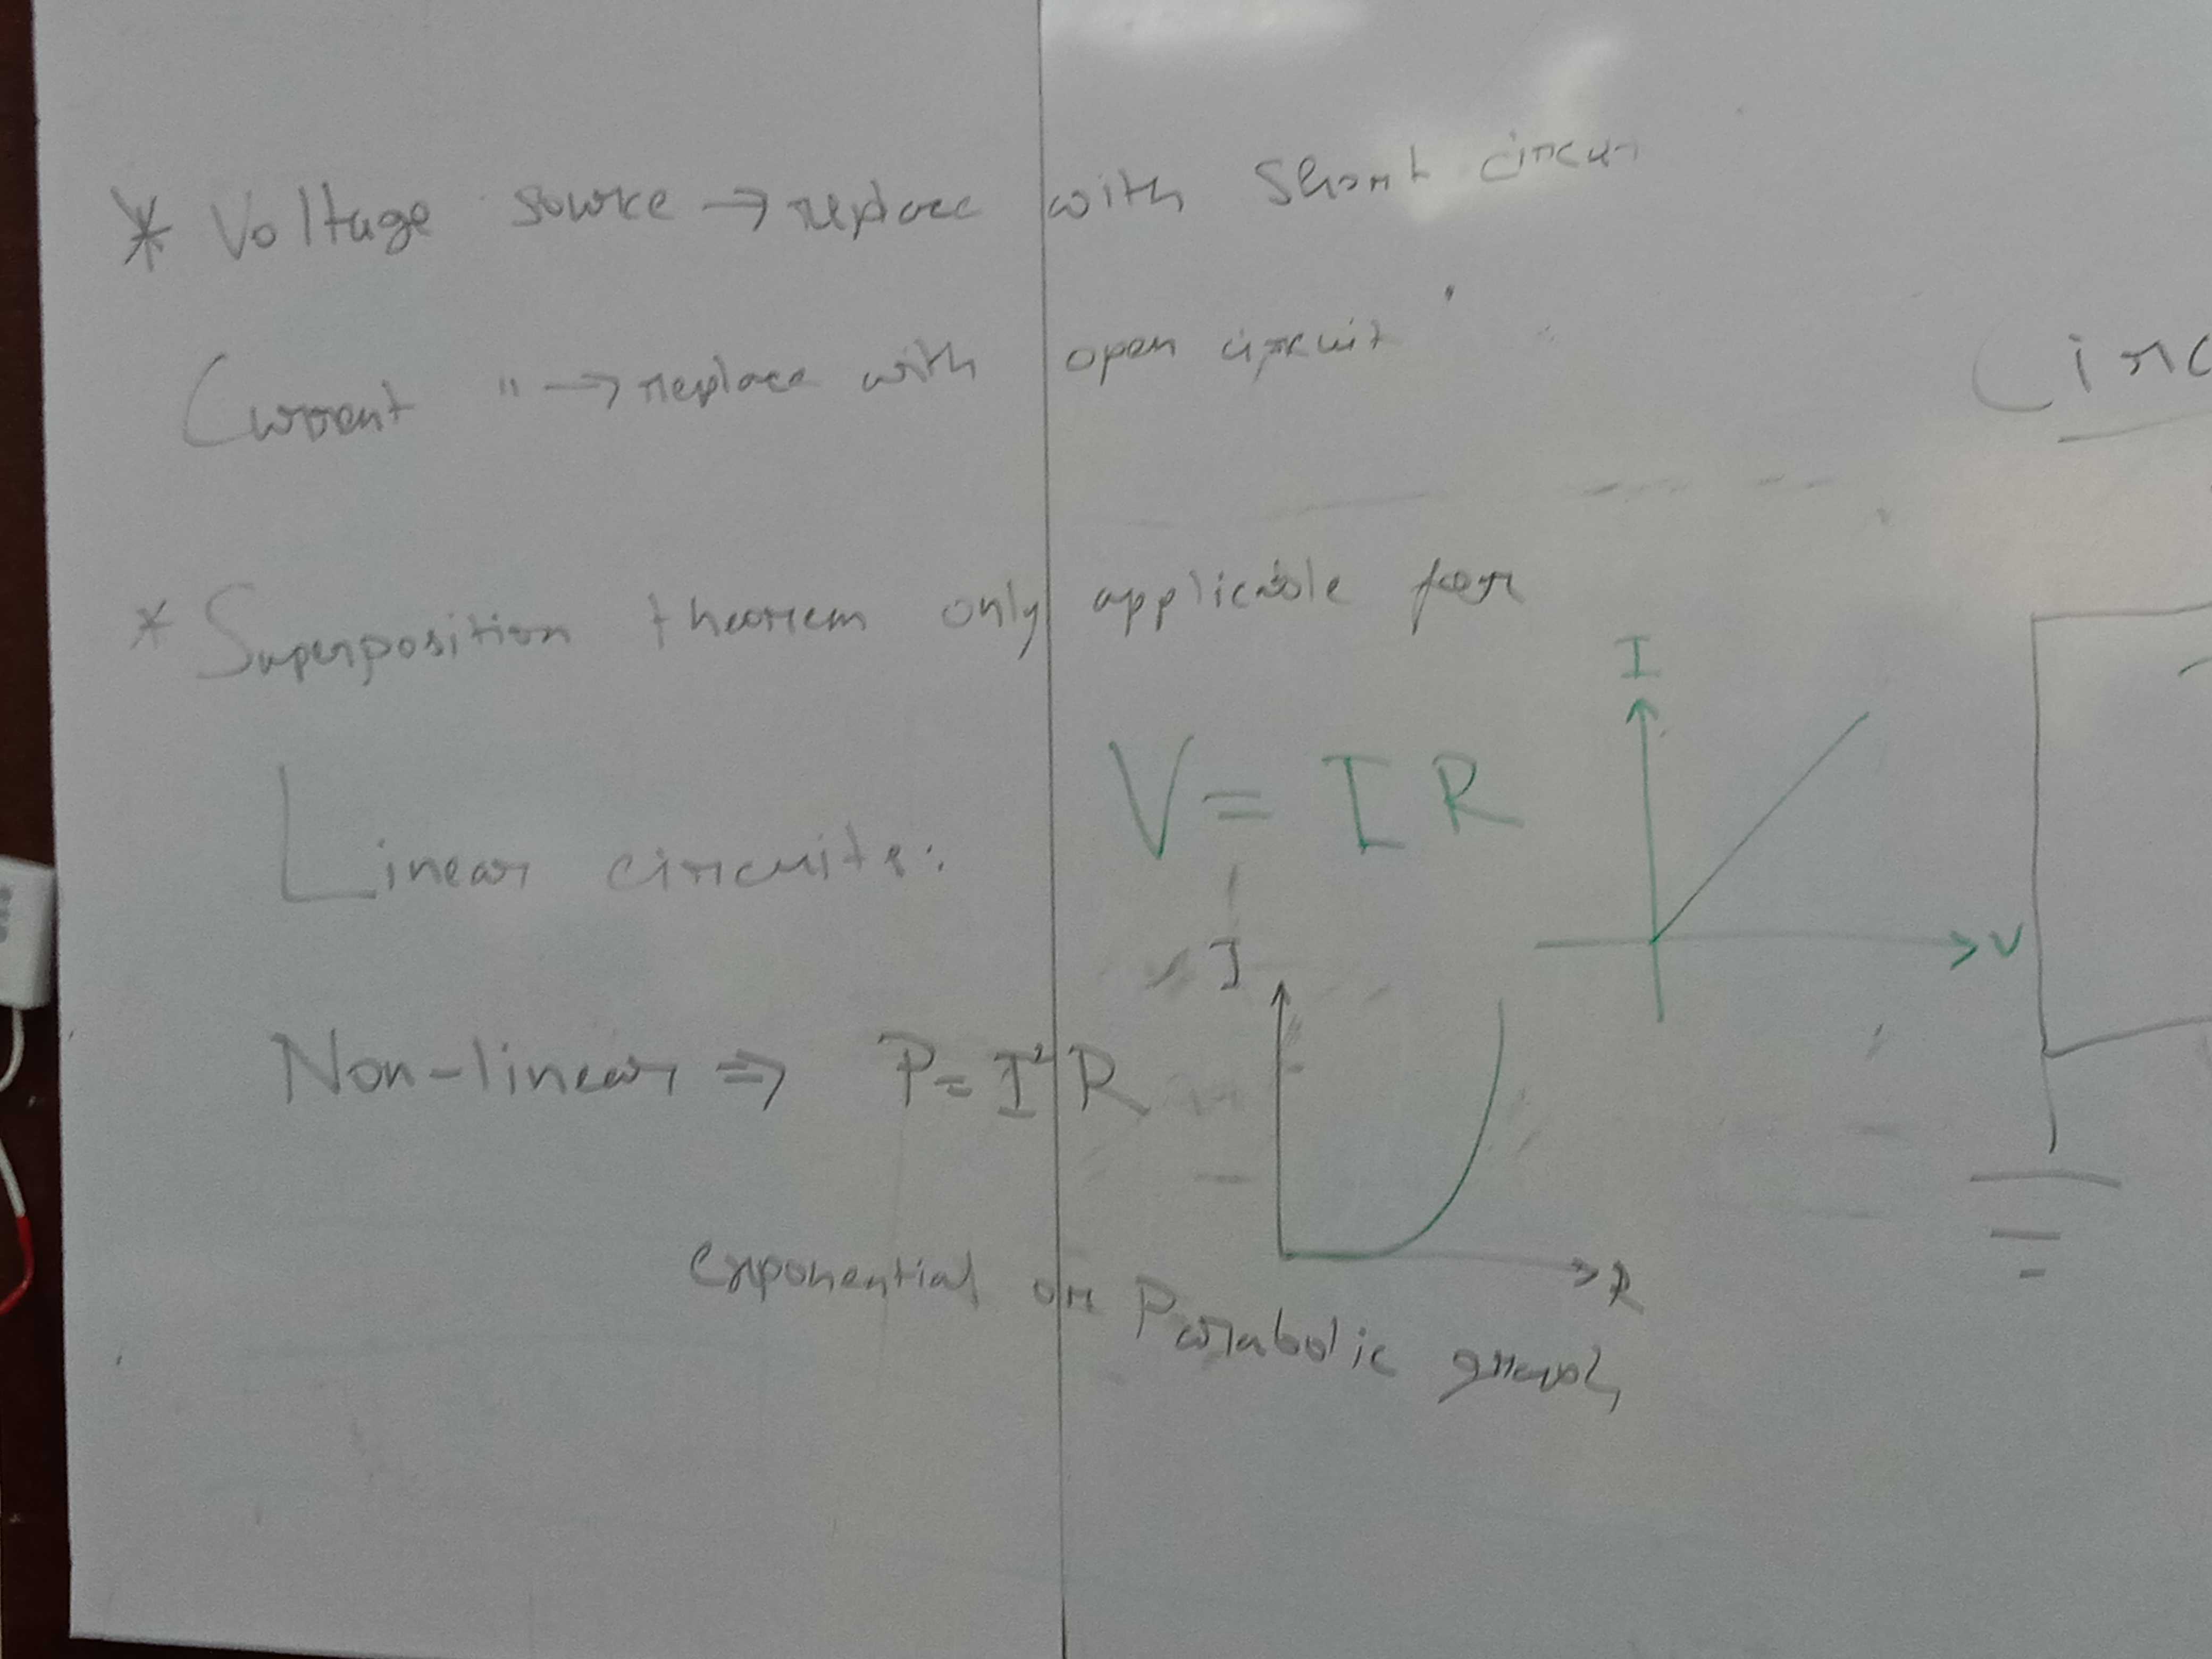 * Voltage source → replace with Short circui
Current " → replace with open circuit
* Superposition theorem only applicable for
Linear circuits:
V = IR
I
V
Non-linear ⇒ P = I²R
I
R
exponential or Parabolic graph
Circ